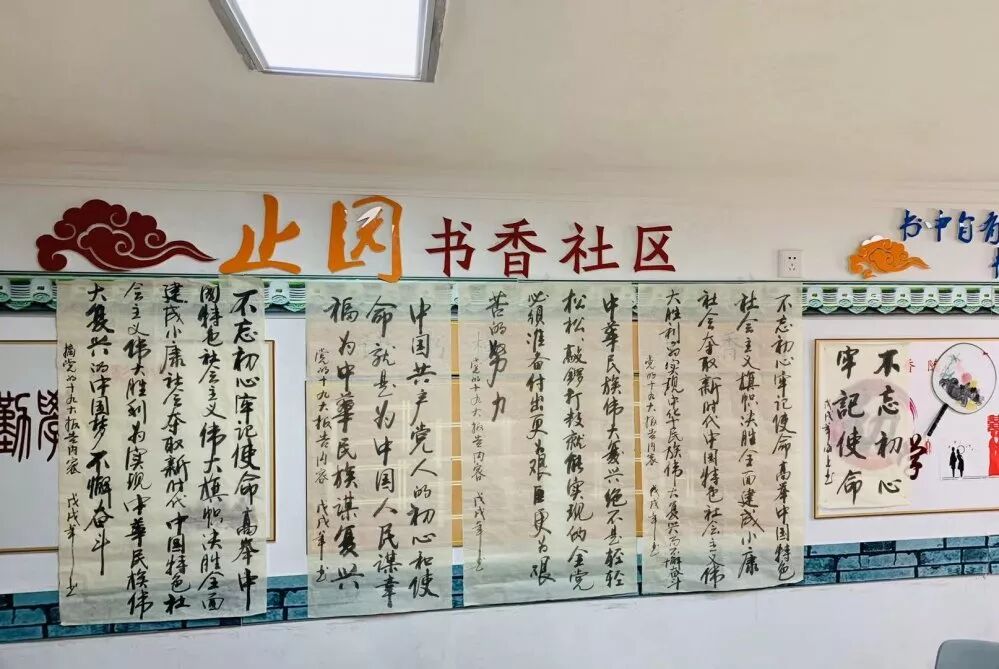 止园 书香社区
书中自有
勤學
不忘初心牢记使命高举中
国特色社会主义伟大旗帜决胜全面
建成小康社会夺取新时代中国特色社
会主义伟大胜利为实现中华民族伟
大复兴的中国梦不懈奋斗
摘党的十九大报告内容 戊戌年 书
中国共产党人的初心和使
命就是为中国人民谋幸
福为中华民族谋复兴
党的十九大报告内容 戊戌年 书
中华民族伟大复兴绝不是轻轻
松松、敲锣打鼓就能实现的全党
必须准备付出更为艰巨更为艰
苦的努力
党的十九大报告内容 戊戌年 书
不忘初心牢记使命高举中国特色
社会主义旗帜决胜全面建成小康
社会夺取新时代中国特色社会主义伟
大胜利为实现中华民族伟大复兴而不懈奋斗
党的十九大报告内容 戊戌年 书
不忘初心
牢記使命
戊戌年
学